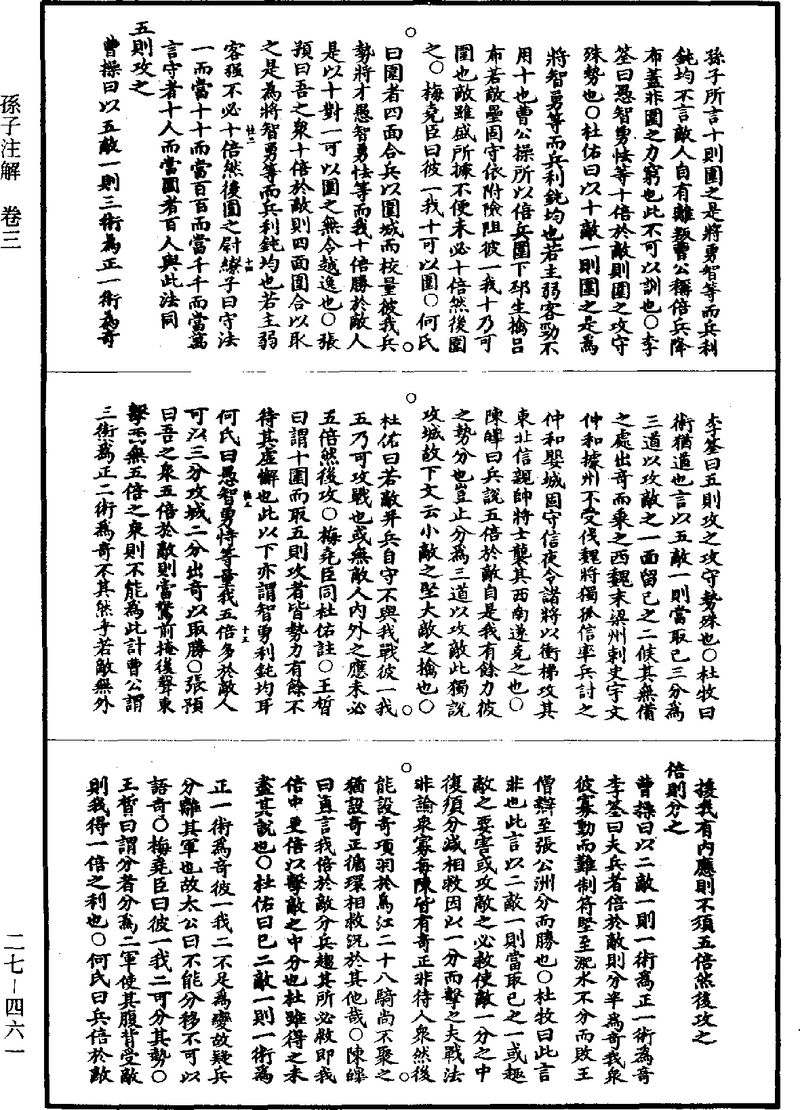 孫子注解 卷三
二七—四六一
孫子所言十則圍之是將勇智等而兵利
鈍均不言敵人自有離叛曹公稱倍兵降
布蓋非圍之力窮也此不可以訓也○李
筌曰愚智勇怯等十倍於敵則圍之攻守
殊勢也○杜佑曰以十敵一則圍之是為
將智勇等而兵利鈍均也若主弱客勁不
用十也曹公操所以倍兵圍下邳生擒呂
布若敵壘固守依附險阻彼一我十乃可
圍也敵雖盛所據不便未必十倍然後圍
之○梅堯臣曰彼一我十可以圍○何氏
曰圍者四面合兵以圍城而校量彼我兵
勢將才愚智勇怯等而我十倍勝於敵人
是以十對一可以圍之無令越逸也○張
預曰吾之衆十倍於敵則四面圍合以取
之是為將智勇等而兵利鈍均也若主弱
客强不必十倍然後圍之尉繚子曰守法
一而當十十而當百百而當千千而當萬
言守者十人而當圍者百人與此法同
五則攻之
曹操曰以五敵一則三術為正一術為奇
李筌曰五則攻之攻守勢殊也○杜牧曰
術猶道也言以五敵一則當取已三分為
三道以攻敵之一面留已之二候其無備
之處出奇而乘之西魏末梁州刺史宇文
仲和據州不受伐魏將獨孤信率兵討之
仲和嬰城固守信夜令諸將以衝梯攻其
東北信親帥將士襲其西南遂克之也○
陳皥曰兵說五倍於敵自是我有餘力彼
之勢分也豈止分為三道以攻敵此獨說
攻城故下文云小敵之堅大敵之擒也○
杜佑曰若敵并兵自守不與我戰彼一我
五乃可攻戰也或無敵人內外之應未必
五倍然後攻○梅堯臣同杜佑註○王晳
曰謂十圍而取五則攻者皆勢力有餘不
待其虛懈也此以下亦謂智勇利鈍均耳
何氏曰愚智勇怯等量我五倍多於敵人
可以三分攻城二分出奇以取勝○張預
曰吾之衆五倍於敵則當驚前掩後聲東
擊西無五倍之衆則不能為此計曹公謂
三術為正二術為奇不其然乎若敵無外
援我有內應則不須五倍然後攻之
倍則分之
曹操曰以二敵一則一術為正一術為奇
李筌曰夫兵者倍於敵則分半為奇我衆
彼寡動而難制符堅至淝水不分而敗王
僧辯至張公洲分而勝也○杜牧曰此言
非也此言以二敵一則當取已之一或趣
敵之要害或攻敵之必救使敵一分之中
復須分減相救因以一分而擊之夫戰法
非論衆寡每陳皆有奇正非待人衆然後
能設奇項羽於烏江二十八騎尚不聚之
猶設奇正循環相救況於其他哉○陳皥
曰直言我倍於敵分兵趨其所必救即我
倍中更倍以擊敵之中分也杜雖得之未
盡其說也○杜佑曰已二敵一則一術為
正一術為奇彼一我二不足為變故疑兵
分離其軍也故太公曰不能分移不可以
語奇○梅堯臣曰彼一我二可分其勢○
王晳曰謂分者分為二軍使其腹背受敵
則我得一倍之利也○何氏曰兵倍於敵